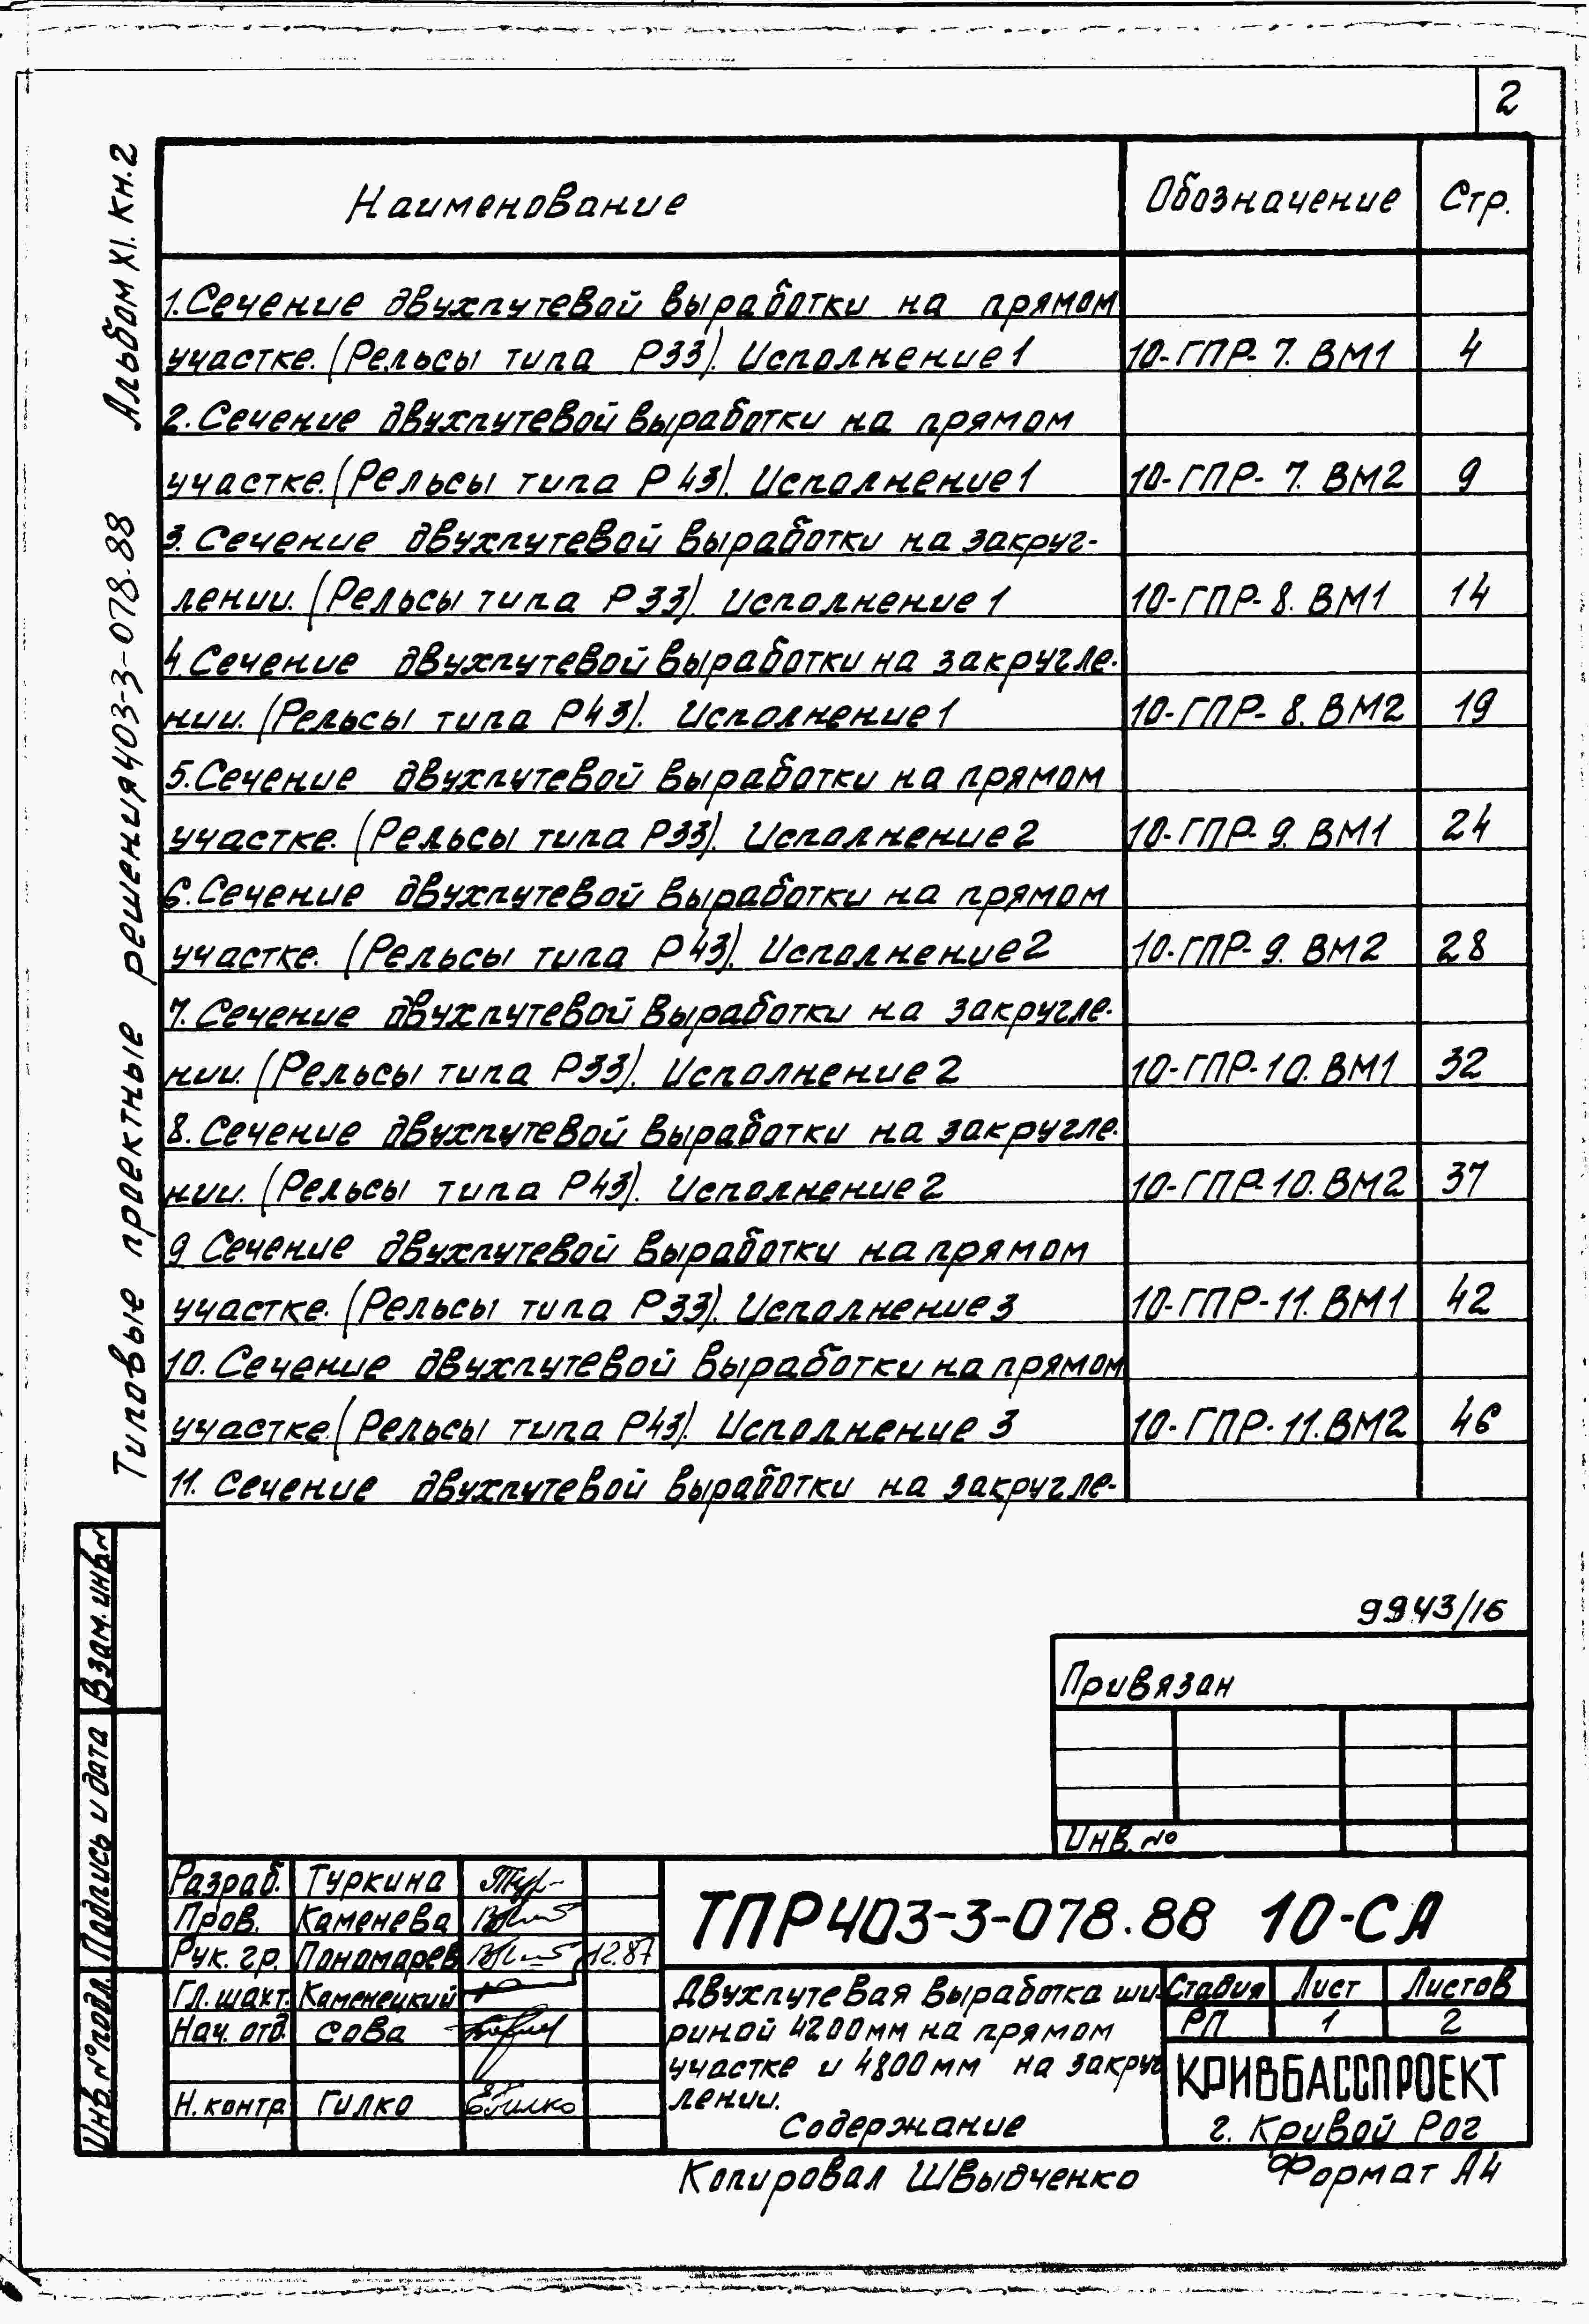 2
Альбом XI. Кн.2
Типовые проектные решения 403-3-078.88
Наименование Обозначение Стр.
1. Сечение двухпутевой выработки на прямом
участке. (Рельсы типа Р33). Исполнение 1 10-ГПР-7. ВМ1 4
2. Сечение двухпутевой выработки на прямом
участке. (Рельсы типа Р43). Исполнение 1 10-ГПР-7. ВМ2 9
3. Сечение двухпутевой выработки на закруг-
лении. (Рельсы типа Р33). Исполнение 1 10-ГПР-8. ВМ1 14
4. Сечение двухпутевой выработки на закругле-
нии. (Рельсы типа Р43). Исполнение 1 10-ГПР-8. ВМ2 19
5. Сечение двухпутевой выработки на прямом
участке. (Рельсы типа Р33). Исполнение 2 10-ГПР-9. ВМ1 24
6. Сечение двухпутевой выработки на прямом
участке. (Рельсы типа Р43). Исполнение 2 10-ГПР-9. ВМ2 28
7. Сечение двухпутевой выработки на закругле-
нии. (Рельсы типа Р33). Исполнение 2 10-ГПР-10. ВМ1 32
8. Сечение двухпутевой выработки на закругле-
нии. (Рельсы типа Р43). Исполнение 2 10-ГПР-10. ВМ2 37
9 Сечение двухпутевой выработки на прямом
участке. (Рельсы типа Р33). Исполнение 3 10-ГПР-11. ВМ1 42
10. Сечение двухпутевой выработки на прямом
участке. (Рельсы типа Р43). Исполнение 3 10-ГПР-11. ВМ2 46
11. Сечение двухпутевой выработки на закругле-
9943/16
Привязан
Инв. №
Взам. инв. №
Подпись и дата
Инв. № подл.
Разраб. Туркина
Пров. Каменева
Рук. гр. Пономарев 12.87
Гл. шахт. Каменецкий
Нач. отд. Сова
Н. контр Гилко
ТПР 403-3-078.88 10-СА
Двухпутевая выработка ши-
риной 4200мм на прямом
участке и 4800мм на закруг
лении.
Содержание
Стадия Лист Листов
РП 1 2
КРИВБАССПРОЕКТ
г. Кривой Рог
Копировал Швыдченко
Формат А4